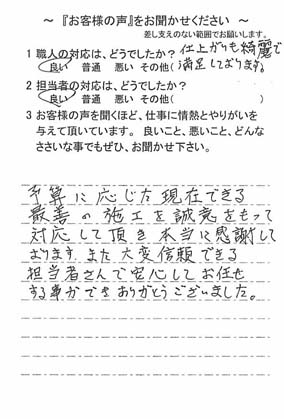 ～『お客様の声』をお聞かせください ～
差し支えのない範囲でお願いします。
1 職人の対応は、どうでしたか？ 仕上がりも綺麗で
良い 普通 悪い その他( 満足しております。
2 担当者の対応は、どうでしたか？
良い 普通 悪い その他( )
3 お客様の声を聞くほど、仕事に情熱とやりがいを
与えて頂いています。 良いこと、悪いこと、どんな
ささいな事でもぜひ、お聞かせ下さい。
予算に応じた現在できる
最善の施工を誠意をもって
対応して頂き本当に感謝して
おります。また大変信頼できる
担当者さんで安心してお任せ
する事ができありがとうございました。